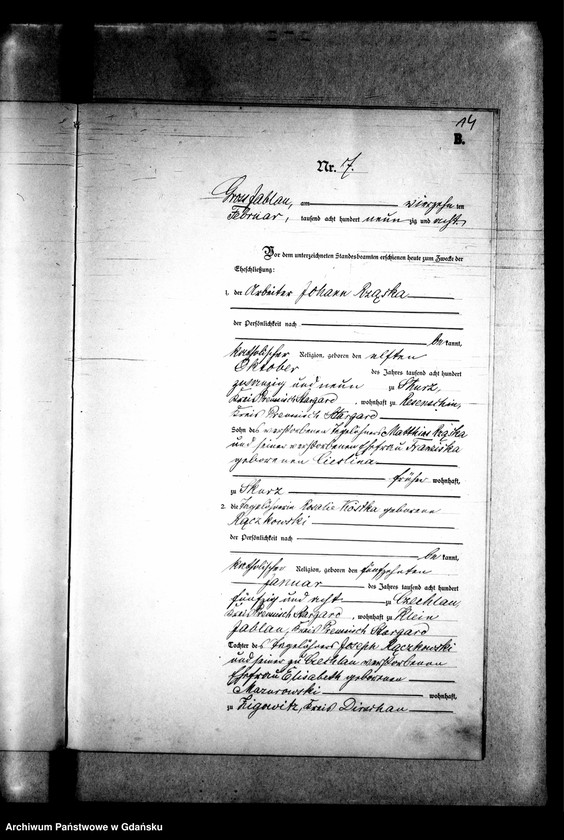 14
B.
Nr. 7.
Gross Jablau, am vierzehn ten
Februar, tausend acht hundert neun zig und acht.
Vor dem unterzeichneten Standesbeamten erschienen heute zum Zwecke der
Eheschließung:
1. der Arbeiter Johann Rząska
der Persönlichkeit nach
be kannt,
katholischer Religion, geboren den elften
Oktober des Jahres tausend acht hundert
zwanzig und neun zu Skurz
Kreis Preussisch Stargard, wohnhaft zu
Kreis Preussisch Stargard
Sohn des verstorbenen Tagelöhners Matthias Rząska
und seiner verstorbenen Ehefrau Franciska
geborenen Cieslina
früher wohnhaft,
zu Skurz
2. die Tagelöhnerin Rosalie Kostka geborene
Rączkowski
der Persönlichkeit nach
be kannt,
katholischer Religion, geboren den fünfzehnten
Januar des Jahres tausend acht hundert
fünfzig und acht zu Czechlau,
Kreis Preussisch Stargard, wohnhaft zu Klein
Jablau, Kreis Preussisch Stargard
Tochter des Tagelöhners Joseph Rączkowski
und seiner zu Czechlau verstorbenen
Ehefrau Elisabeth geborenen
Mazurowski wohnhaft,
zu Kreis Dirschau
Archiwum Państwowe w Gdańsku